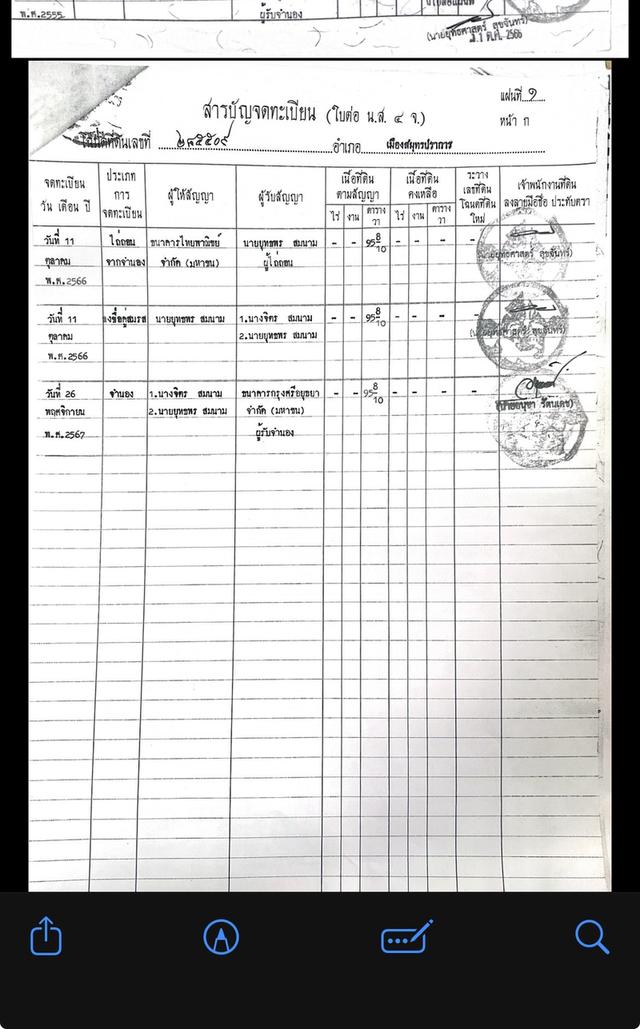 พ.ศ.2555 ผู้รับจำนอง
(นายยุทธศาสตร์ สุขจันทร์)
ต.ค. 2566
สารบัญจดทะเบียน (ใบต่อ น.ส. ๔ จ.)
แผ่นที่ ๑
หน้า ก
ที่ดินเลขที่ ๒๘๕๕๐๙ อำเภอ เมืองสมุทรปราการ
จดทะเบียน
วัน เดือน ปี
ประเภท
การ
จดทะเบียน
ผู้ให้สัญญา
ผู้รับสัญญา
เนื้อที่ดิน
ตามสัญญา
ไร่ งาน ตาราง
วา
เนื้อที่ดิน
คงเหลือ
ไร่ งาน ตาราง
วา
ระวาง
เลขที่ดิน
โฉนดที่ดิน
ใหม่
เจ้าพนักงานที่ดิน
ลงลายมือชื่อ ประทับตรา
วันที่ 11 ไถ่ถอน ธนาคารไทยพาณิชย์ นายยุทธพร สมนาม - - 95 8/10 - - - -
ตุลาคม จากจำนอง จำกัด (มหาชน) ผู้ไถ่ถอน (นายยุทธศาสตร์ สุขจันทร์)
พ.ศ.2566
วันที่ 11 ลงชื่อคู่สมรส นายยุทธพร สมนาม 1.นางจิตร สมนาม - - 95 8/10 - - - -
ตุลาคม 2.นายยุทธพร สมนาม (นายยุทธศาสตร์ สุขจันทร์)
พ.ศ.2566
วันที่ 26 จำนอง 1.นางจิตร สมนาม ธนาคารกรุงศรีอยุธยา - - 95 8/10 - - - -
พฤศจิกายน 2.นายยุทธพร สมนาม จำกัด (มหาชน)
พ.ศ.2567 ผู้รับจำนอง